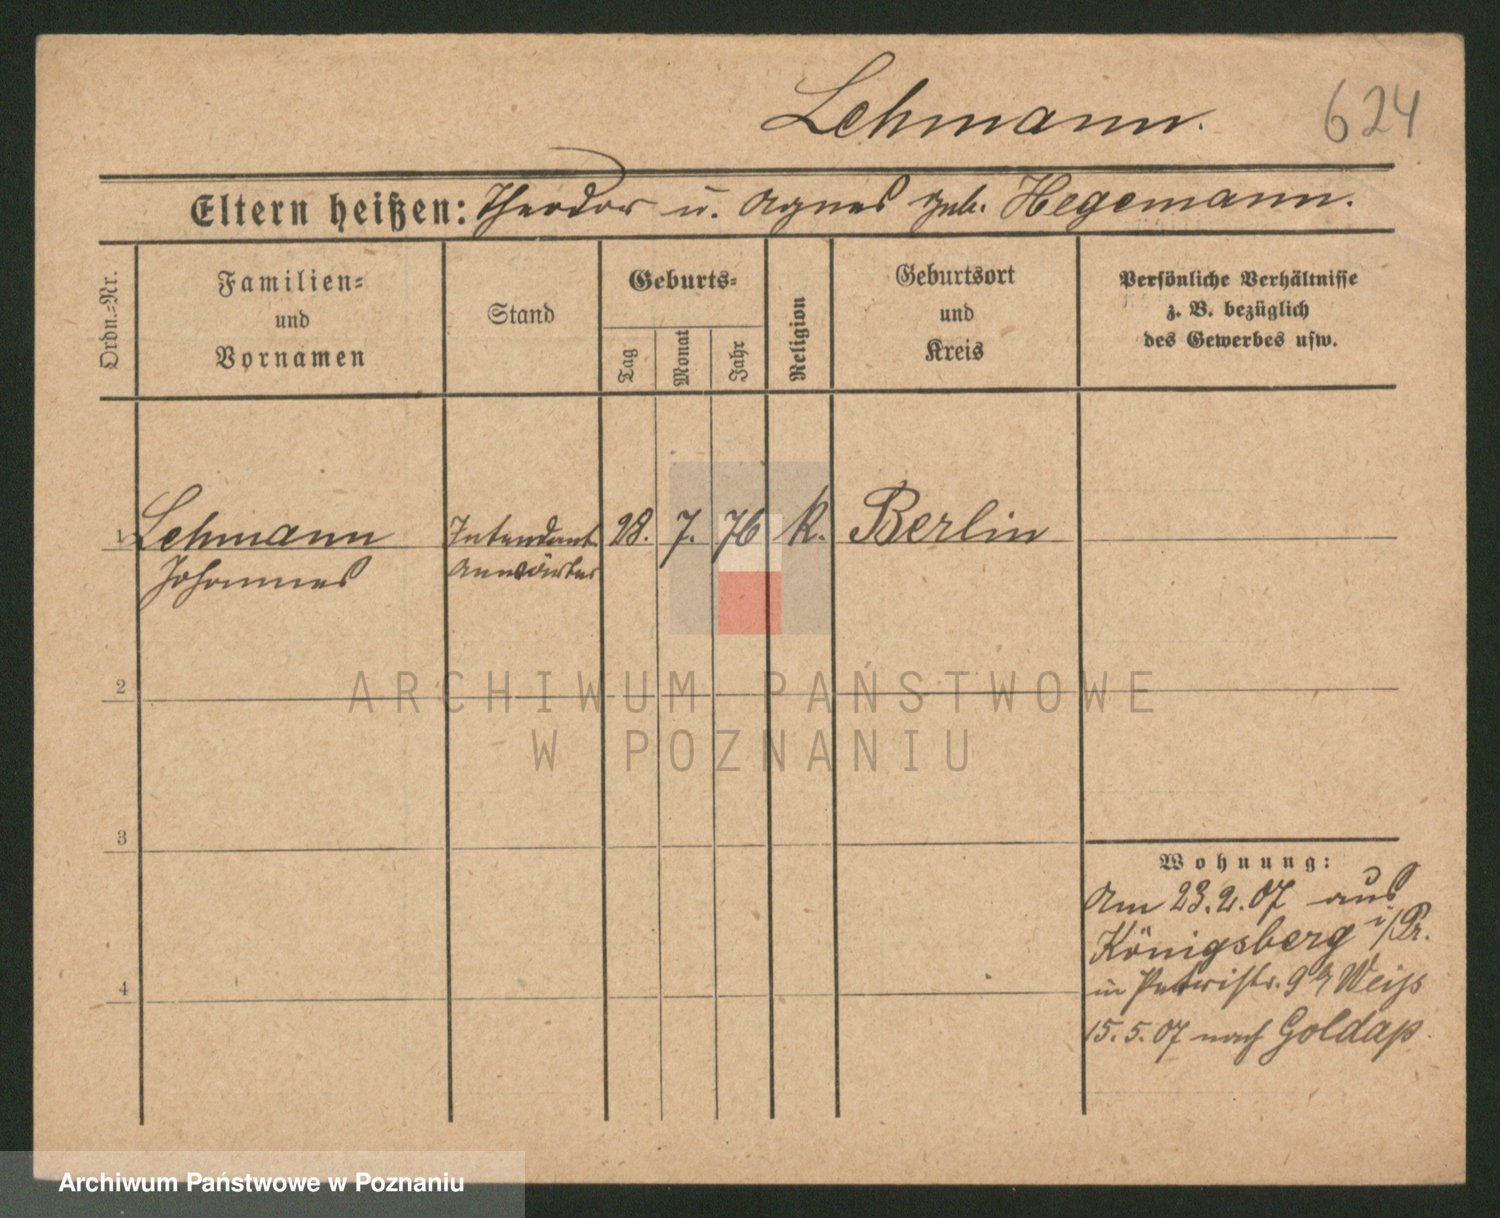 Lehmann.
624
Eltern heißen: Theodor u. Agnes geb. Hegemann.
Ordn.-Nr.
Familien-
und
Vornamen
Stand
Geburts-
Tag
Monat
Jahr
Religion
Geburtsort
und
Kreis
Persönliche Verhältnisse
z. B. bezüglich
des Gewerbes usw.
1 Lehmann Intendant. 28. 7. 76 k. Berlin
Johannes Anwärter
2
3
4
Wohnung:
Am 23.2.07 aus
Königsberg i/Pr.
in Petristr. 9 Weiss
15.5.07 nach Goldap.
ARCHIWUM PAŃSTWOWE
W POZNANIU
Archiwum Państwowe w Poznaniu